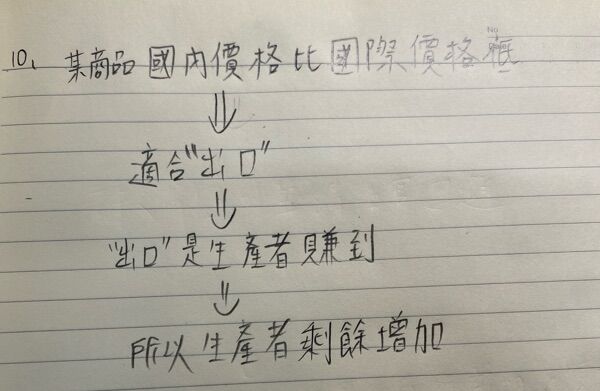 No
10. 某商品國內價格比國際價格低
⇓
適合"出口"
⇓
"出口"是生產者賺到
⇓
所以生產者剩餘增加